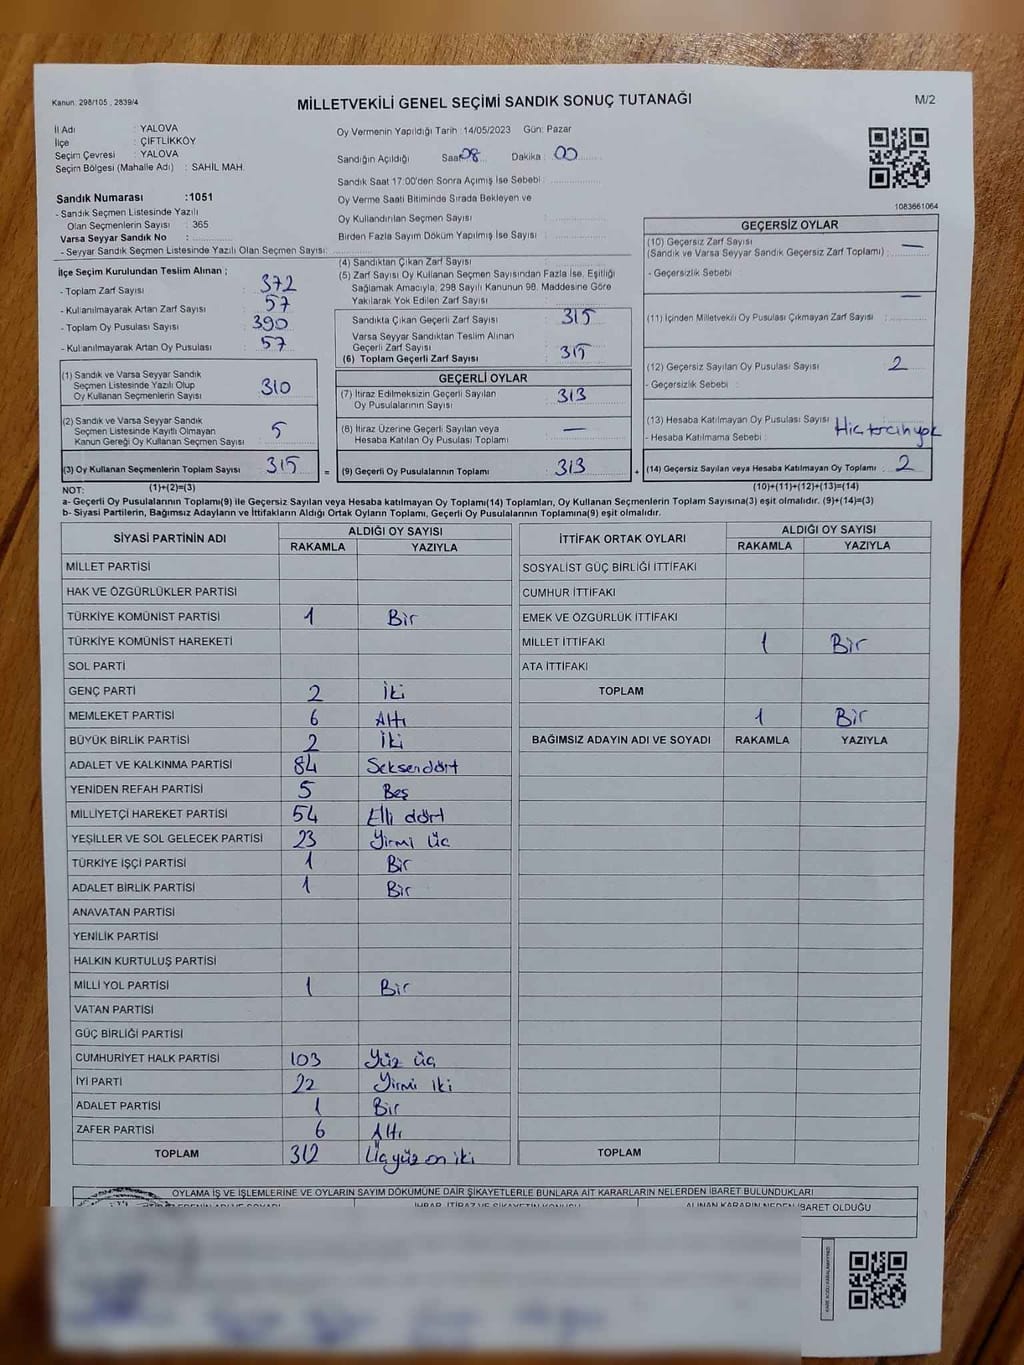 Kanun: 298/105 , 2839/4
MİLLETVEKİLİ GENEL SEÇİMİ SANDIK SONUÇ TUTANAĞI
M/2
İl Adı : YALOVA
İlçe : ÇİFTLİKKÖY
Seçim Çevresi : YALOVA
Seçim Bölgesi (Mahalle Adı) : SAHİL MAH.
Oy Vermenin Yapıldığı Tarih : 14/05/2023 Gün: Pazar
Sandığın Açıldığı Saat 08 Dakika : 00
Sandık Saat 17:00'den Sonra Açımış İse Sebebi :
Oy Verme Saati Bitiminde Sırada Bekleyen ve
Oy Kullandırılan Seçmen Sayısı :
Birden Fazla Sayım Döküm Yapılmış İse Sayısı :
1083661064
Sandık Numarası :1051
- Sandık Seçmen Listesinde Yazılı
Olan Seçmenlerin Sayısı : 365
Varsa Seyyar Sandık No :
- Seyyar Sandık Seçmen Listesinde Yazılı Olan Seçmen Sayısı:
İlçe Seçim Kurulundan Teslim Alınan ;
- Toplam Zarf Sayısı : 372
- Kullanılmayarak Artan Zarf Sayısı : 57
- Toplam Oy Pusulası Sayısı : 390
- Kullanılmayarak Artan Oy Pusulası : 57
(1) Sandık ve Varsa Seyyar Sandık
Seçmen Listesinde Yazılı Olup
Oy Kullanan Seçmenlerin Sayısı : 310
(2) Sandık ve Varsa Seyyar Sandık
Seçmen Listesinde Kayıtlı Olmayan
Kanun Gereği Oy Kullanan Seçmen Sayısı : 5
(3) Oy Kullanan Seçmenlerin Toplam Sayısı : 315
(1)+(2)=(3)
(4) Sandıktan Çıkan Zarf Sayısı :
(5) Zarf Sayısı Oy Kullanan Seçmen Sayısından Fazla İse, Eşitliği
Sağlamak Amacıyla, 298 Sayılı Kanunun 98. Maddesine Göre
Yakılarak Yok Edilen Zarf Sayısı :
Sandıkta Çıkan Geçerli Zarf Sayısı : 315
Varsa Seyyar Sandıktan Teslim Alınan
Geçerli Zarf Sayısı :
(6) Toplam Geçerli Zarf Sayısı : 315
GEÇERLİ OYLAR
(7) İtiraz Edilmeksizin Geçerli Sayılan
Oy Pusulalarının Sayısı : 313
(8) İtiraz Üzerine Geçerli Sayılan veya
Hesaba Katılan Oy Pusulası Toplamı : —
= (9) Geçerli Oy Pusulalarının Toplamı : 313
GEÇERSİZ OYLAR
(10) Geçersiz Zarf Sayısı
(Sandık ve Varsa Seyyar Sandık Geçersiz Zarf Toplamı) : —
- Geçersizlik Sebebi :
—
(11) İçinden Milletvekili Oy Pusulası Çıkmayan Zarf Sayısı :
(12) Geçersiz Sayılan Oy Pusulası Sayısı : 2
- Geçersizlik Sebebi :
(13) Hesaba Katılmayan Oy Pusulası Sayısı :
- Hesaba Katılmama Sebebi : Hiç tercih yok
+ (14) Geçersiz Sayılan veya Hesaba Katılmayan Oy Toplamı : 2
(10)+(11)+(12)+(13)=(14)
NOT:
a- Geçerli Oy Pusulalarının Toplamı(9) ile Geçersiz Sayılan veya Hesaba katılmayan Oy Toplamı(14) Toplamları, Oy Kullanan Seçmenlerin Toplam Sayısına(3) eşit olmalıdır. (9)+(14)=(3)
b- Siyasi Partilerin, Bağımsız Adayların ve İttifakların Aldığı Ortak Oyların Toplamı, Geçerli Oy Pusulalarının Toplamına(9) eşit olmalıdır.
SİYASİ PARTİNİN ADI ALDIĞI OY SAYISI
RAKAMLA YAZIYLA
MİLLET PARTİSİ
HAK VE ÖZGÜRLÜKLER PARTİSİ
TÜRKİYE KOMÜNİST PARTİSİ 1 Bir
TÜRKİYE KOMÜNİST HAREKETİ
SOL PARTİ
GENÇ PARTİ 2 İki
MEMLEKET PARTİSİ 6 Altı
BÜYÜK BİRLİK PARTİSİ 2 İki
ADALET VE KALKINMA PARTİSİ 84 Seksendört
YENİDEN REFAH PARTİSİ 5 Beş
MİLLİYETÇİ HAREKET PARTİSİ 54 Elli dört
YEŞİLLER VE SOL GELECEK PARTİSİ 23 Yirmi üç
TÜRKİYE İŞÇİ PARTİSİ 1 Bir
ADALET BİRLİK PARTİSİ 1 Bir
ANAVATAN PARTİSİ
YENİLİK PARTİSİ
HALKIN KURTULUŞ PARTİSİ
MİLLİ YOL PARTİSİ 1 Bir
VATAN PARTİSİ
GÜÇ BİRLİĞİ PARTİSİ
CUMHURİYET HALK PARTİSİ 103 Yüz üç
İYİ PARTİ 22 Yirmi iki
ADALET PARTİSİ 1 Bir
ZAFER PARTİSİ 6 Altı
TOPLAM 312 Üçyüz on iki
İTTİFAK ORTAK OYLARI ALDIĞI OY SAYISI
RAKAMLA YAZIYLA
SOSYALİST GÜÇ BİRLİĞİ İTTİFAKI
CUMHUR İTTİFAKI
EMEK VE ÖZGÜRLÜK İTTİFAKI
MİLLET İTTİFAKI 1 Bir
ATA İTTİFAKI
TOPLAM
1 Bir
BAĞIMSIZ ADAYIN ADI VE SOYADI RAKAMLA YAZIYLA
TOPLAM
OYLAMA İŞ VE İŞLEMLERİNE VE OYLARIN SAYIM DÖKÜMÜNE DAİR ŞİKAYETLERLE BUNLARA AİT KARARLARIN NELERDEN İBARET BULUNDUKLARI
İHBAR, İTİRAZ VE ŞİKAYETİN KONUSU ALINAN KARARIN NEDEN İBARET OLDUĞU